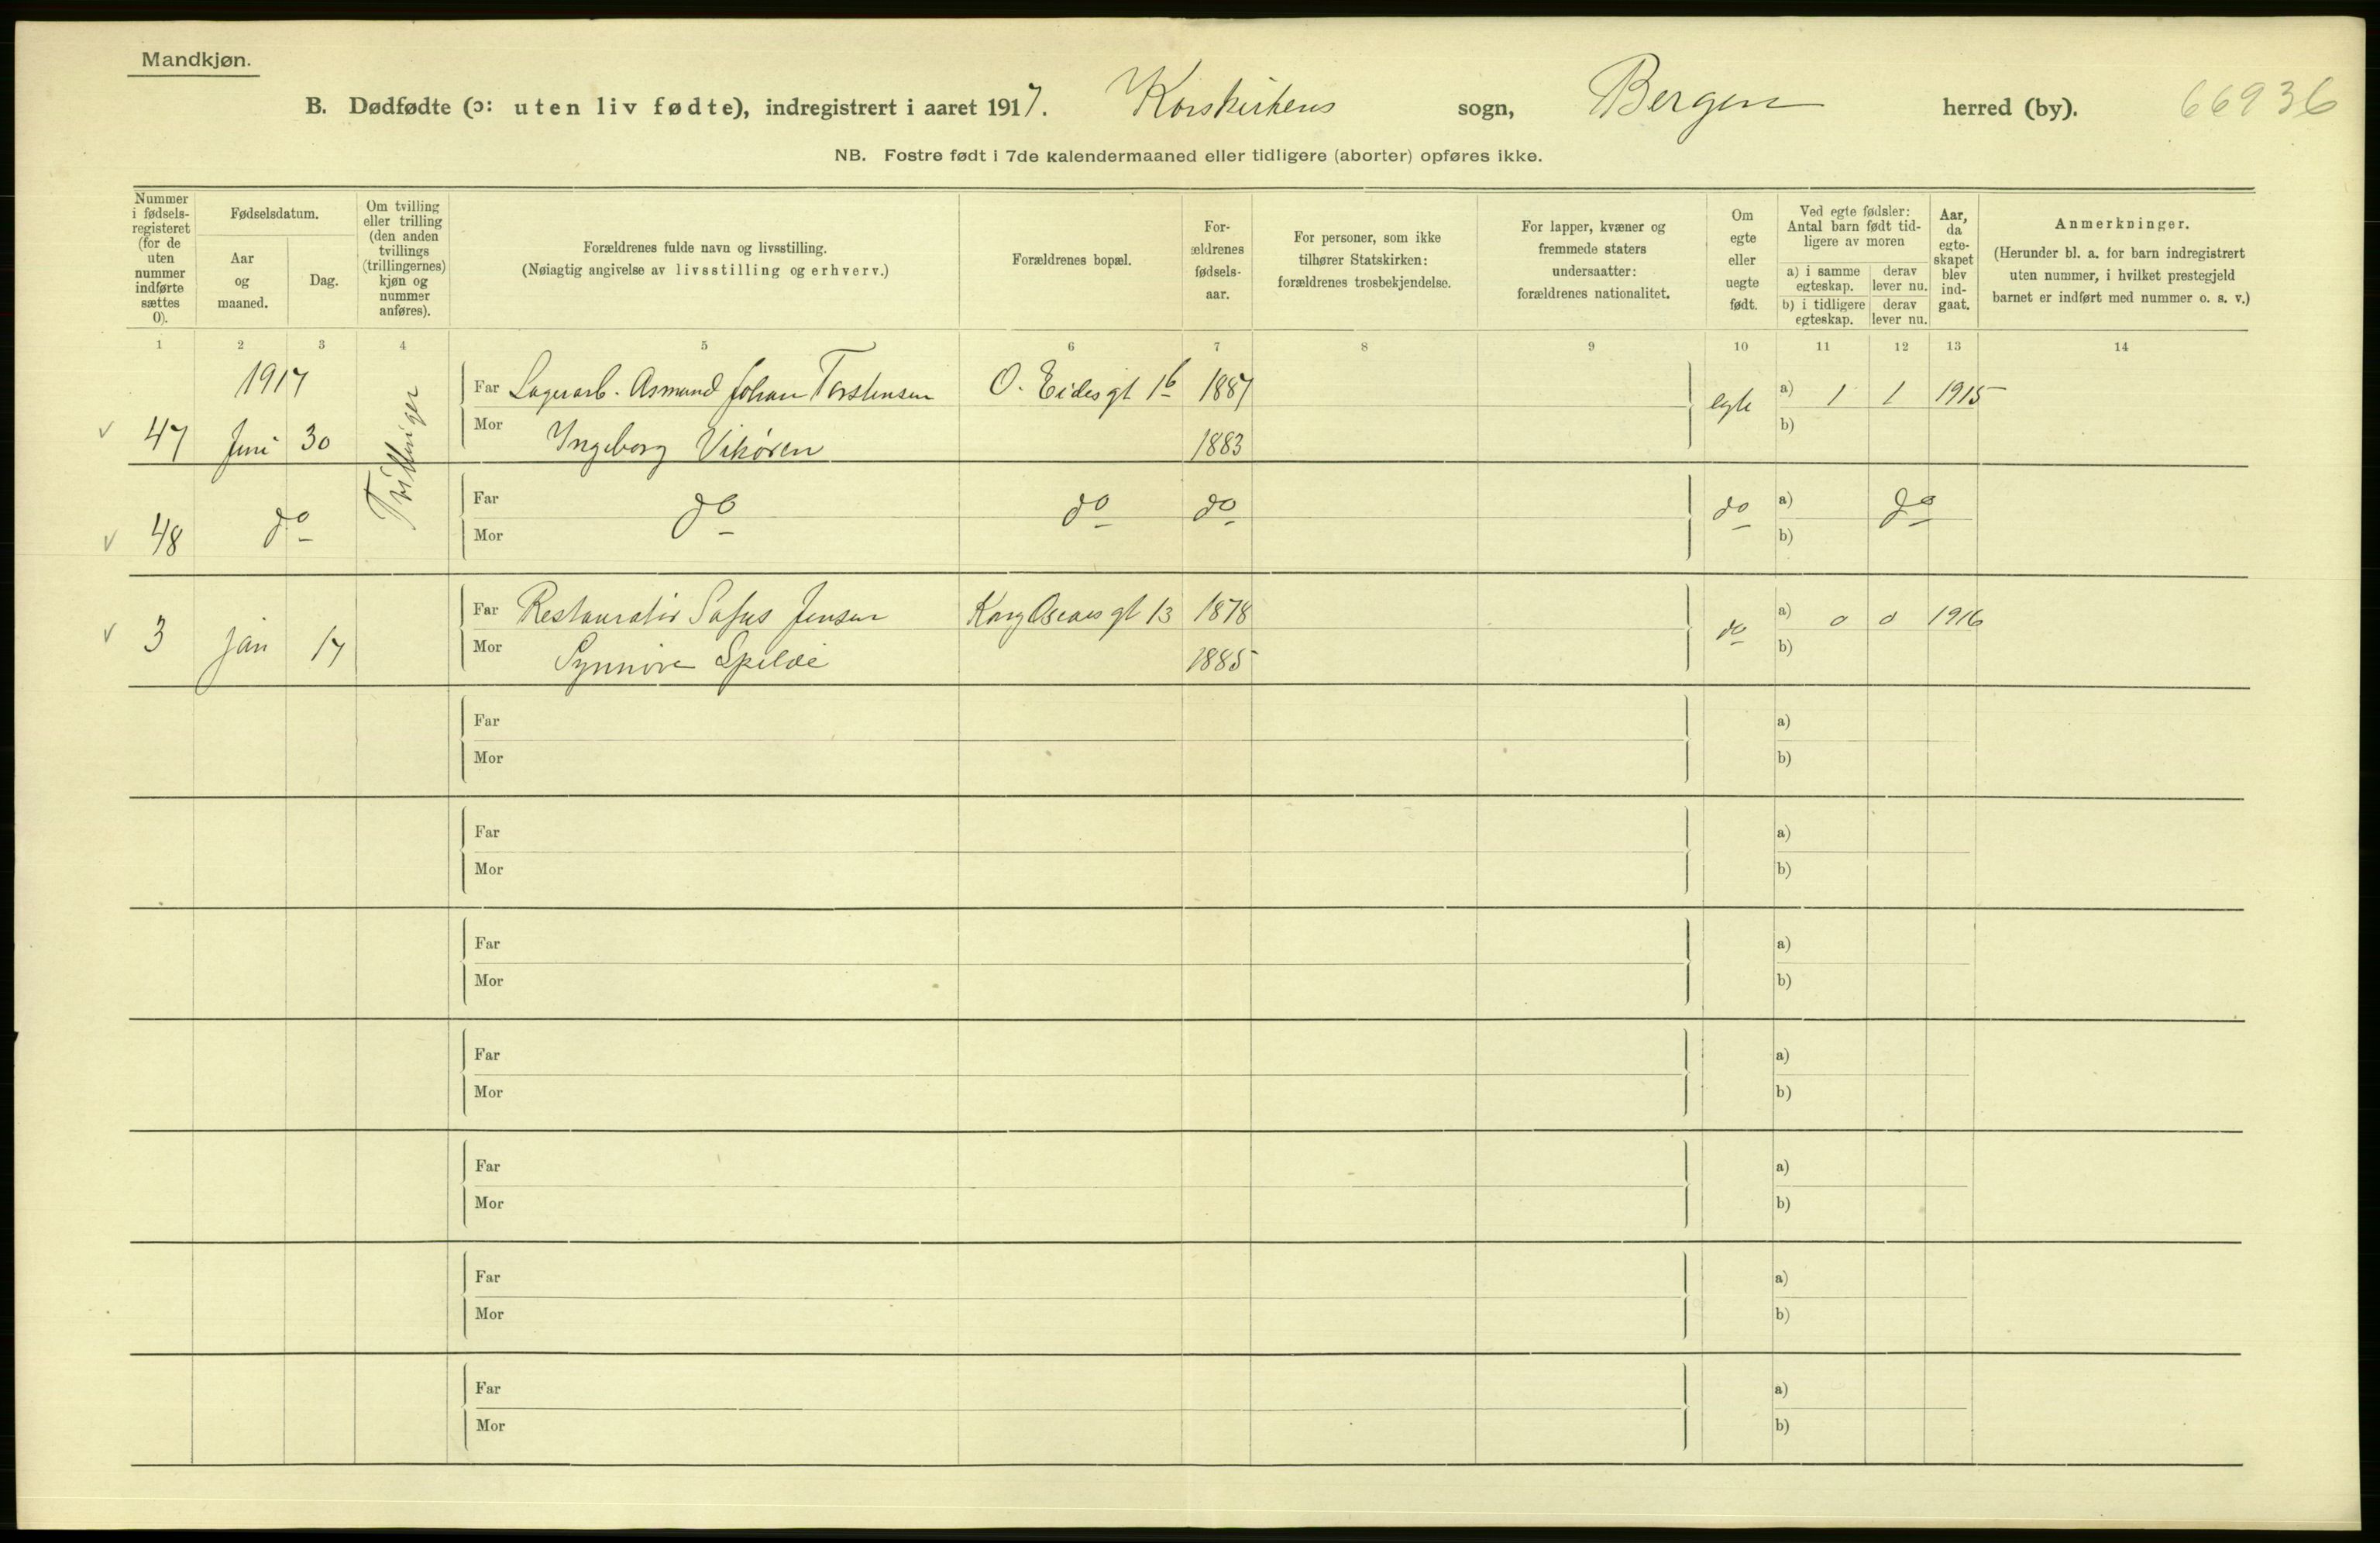 Mandkjøn.
B. Dødfødte (ɔ: uten liv fødte), indregistrert i aaret 1917. Korskirkens sogn, Bergen herred (by). 66936
NB. Fostre født i 7de kalendermaaned eller tidligere (aborter) opføres ikke.
Nummer i fødsels-registeret (for de uten nummer indførte sættes 0).
Fødselsdatum.
Aar og maaned.
Dag.
Om tvilling eller trilling (den anden tvillings (trillingernes) kjøn og nummer anføres).
Forældrenes fulde navn og livsstilling.
(Nøiagtig angivelse av livsstilling og erhverv.)
Forældrenes bopæl.
For-ældrenes fødsels-aar.
For personer, som ikke tilhører Statskirken: forældrenes trosbekjendelse.
For lapper, kvæner og fremmede staters undersaatter: forældrenes nationalitet.
Om egte eller uegte født.
Ved egte fødsler: Antal barn født tid-ligere av moren
a) i samme egteskap. derav lever nu.
b) i tidligere egteskap. derav lever nu.
Aar, da egte-skapet blev ind-gaat.
Anmerkninger.
(Herunder bl. a. for barn indregistrert uten nummer, i hvilket prestegjeld barnet er indført med nummer o. s. v.)
1 2 3 4 5 6 7 8 9 10 11 12 13 14
1917
Far Lagerarb. Asmund Johan Torstensen O. Eides gt 16 1887 egte a) 1 1 1915
v 47 Juni 30 Trillinger Mor Ingeborg Vikøren 1883 b)
Far do do do do a) do
v 48 do Mor b)
Far Restauratør Sofus Jensen Kong Oscars gt 13 1878 do a) 0 0 1916
v 3 jan 17 Mor Synnøve Spilde 1885 b)
Far a)
Mor b)
Far a)
Mor b)
Far a)
Mor b)
Far a)
Mor b)
Far a)
Mor b)
Far a)
Mor b)
Far a)
Mor b)